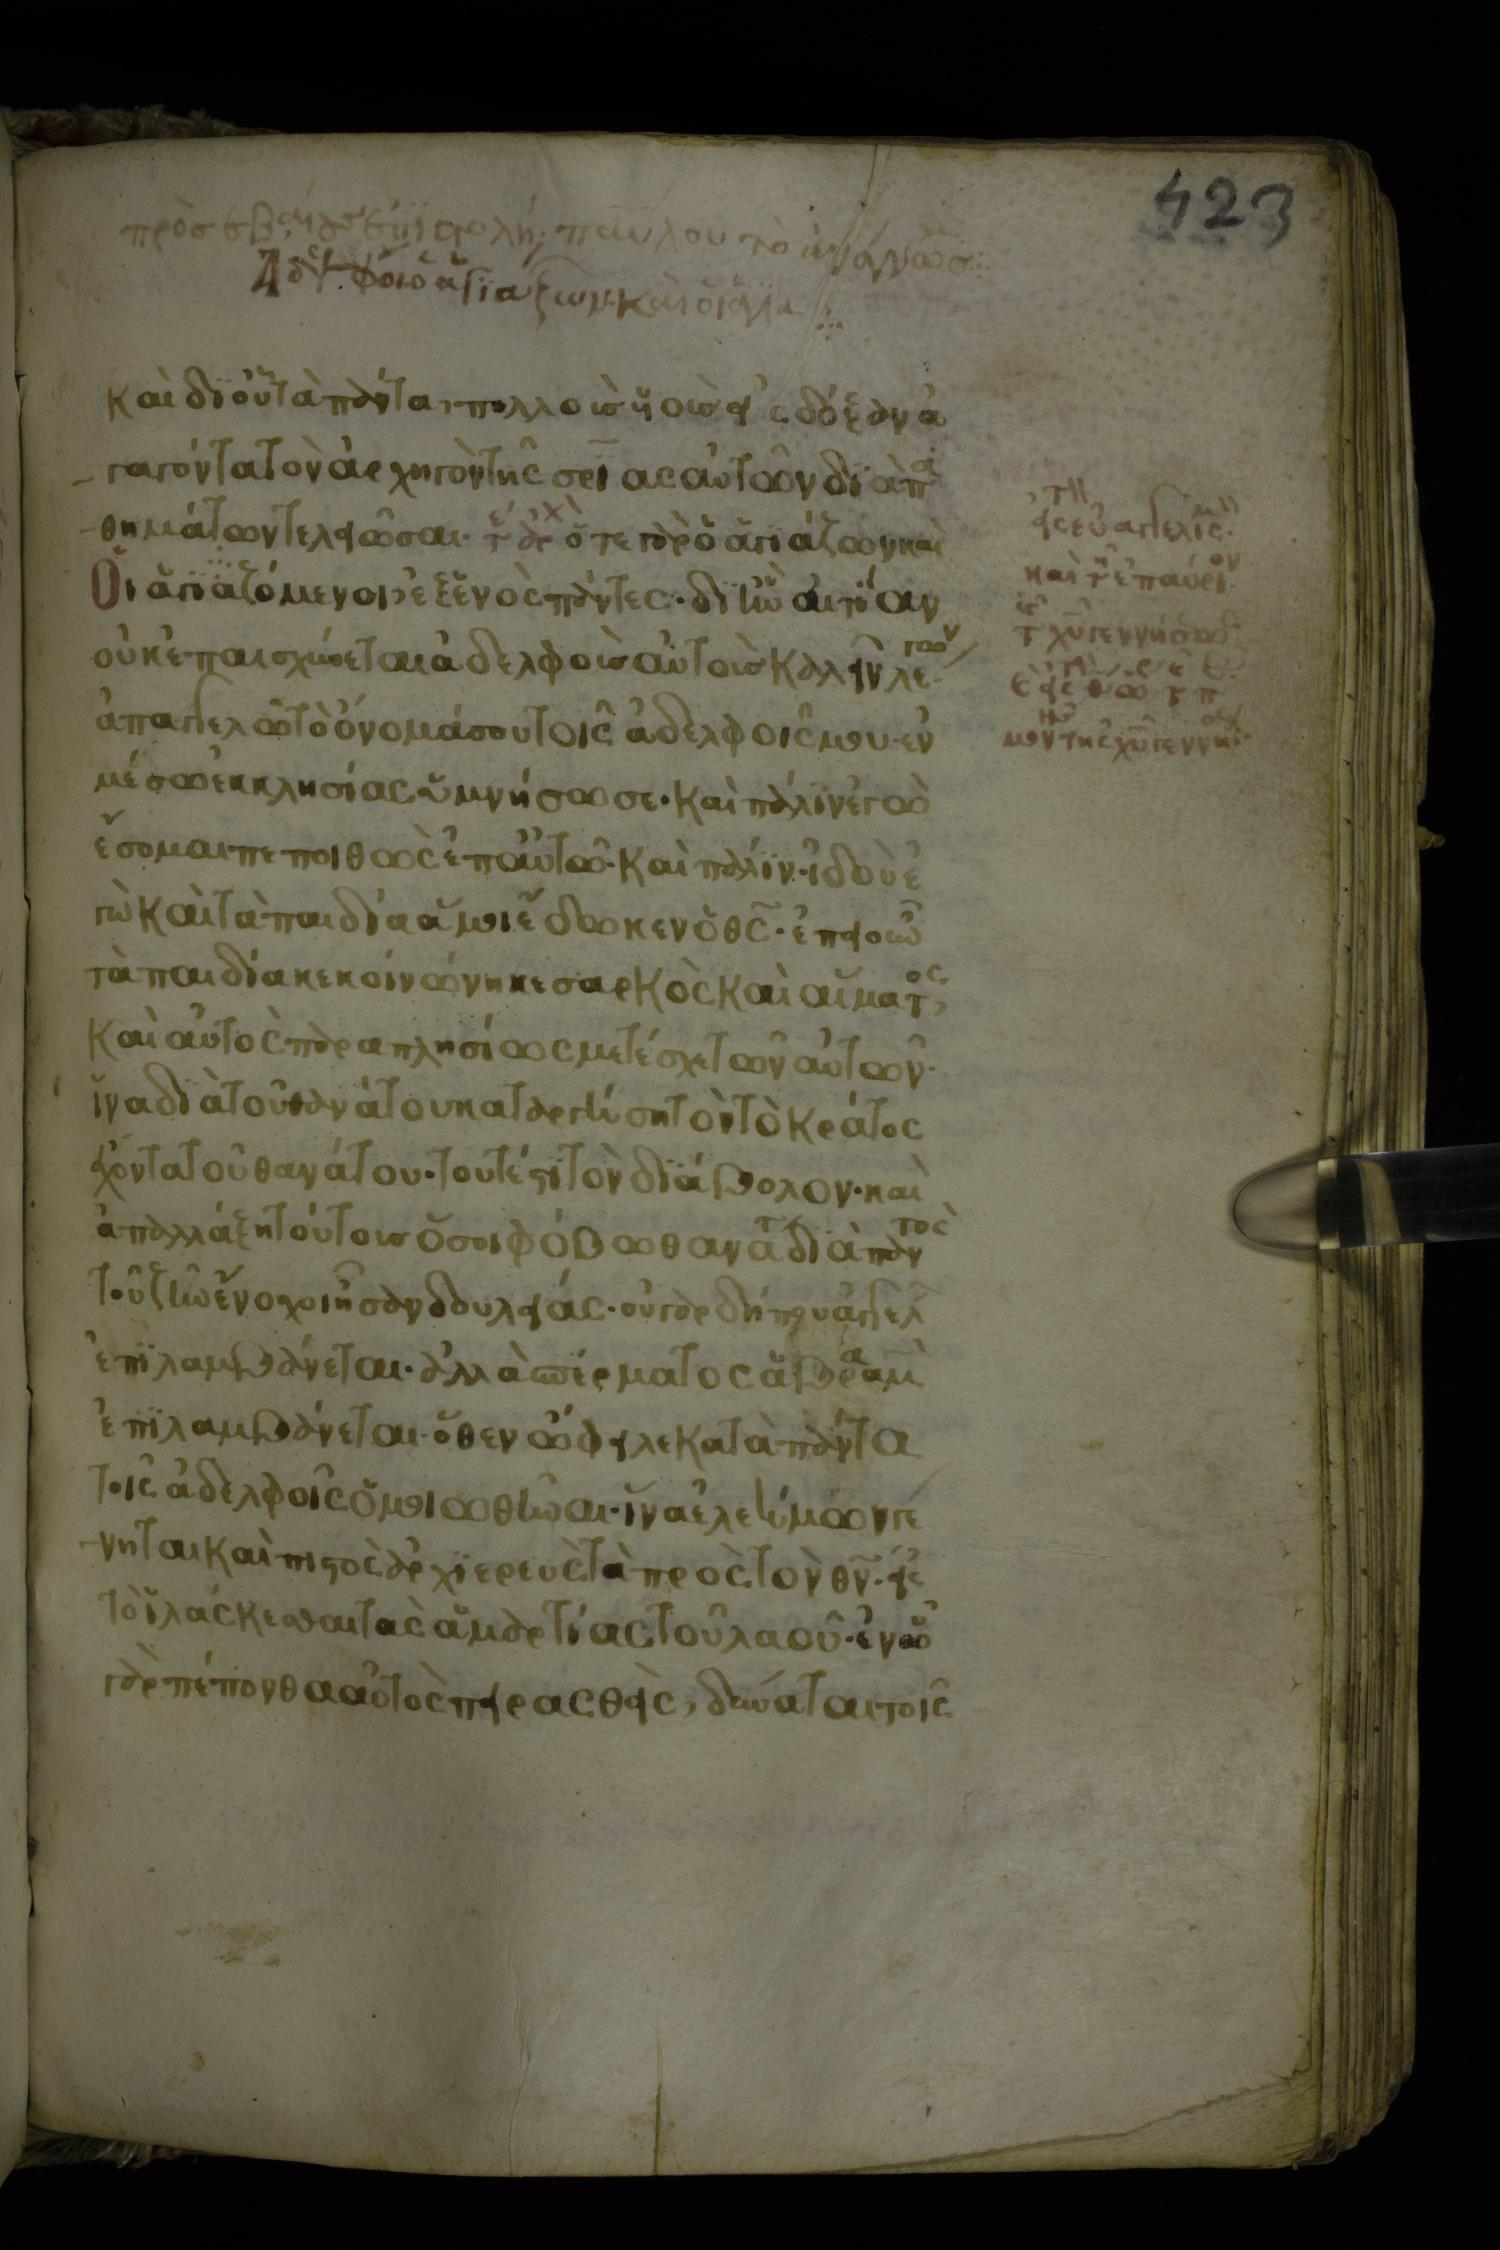 423
πρὸς ἑβραίους ἐπιστολὴ παύλου τὸ ἀνάγνωσ
Ἀδελφοὶ ὁ ἁγιάζων καὶ οἱ ἁγια
καὶ δι οὗ τὰ πάντα, πολλοὺς ὑιοὺς εἰς δόξαν ἀ
γαγόντα τὸν ἀρχηγὸν τῆς σρίας αὐτῶν διὰ πα
θημάτων τελειῶσαι· ὅ τε γὰρ ὁ ἁγιάζων καὶ
Οἱ ἁγιαζόμενοι, ἐξ ἑνὸς πάντες· δι ἣν αἰτίαν
οὐκ ἐπαισχύνεται ἀδελφοὺς αὐτοὺς καλεῖν λέγων
ἀπαγγελῶ τὸ ὄνομά σου τοῖς ἀδελφοῖς μου· ἐν
μέσω ἐκκλησίας ὑμνήσω σε· καὶ πάλιν ἐγὼ
ἔσομαι πεποιθὼς ἐπ αὐτῶ· καὶ πάλιν· ἰδοὺ ἐ
γὼ καὶ τὰ παιδία ἅ μοι ἔδωκεν ὁ θς· ἐπεὶ οὖν
τὰ παιδία κεκοινώνηκε σαρκὸς καὶ αἵματος,
καὶ αὐτὸς παραπλησίως μετέσχε τῶν αὐτῶν·
ἵνα διὰ τοῦ θανάτου καταργήση τὸν τὸ κράτος
ἔχοντα τοῦ θανάτου· τουτέστι τὸν διάβολον· καὶ
ἀπαλλάξη τούτους ὅσοι φόβω θανάτου διὰ παντὸς
τοῦ ζῆν ἔνοχοι ἦσαν δουλείας· οὐ γὰρ δήπου ἀγγέλ
ἐπιλαμβάνεται· ἀλλὰ σπέρματος ἁβραὰμ
ἐπιλαμβάνεται· ὅθεν ὤφειλε κατὰ πάντα
τοῖς ἀδελφοῖς ὁμοιωθῆναι· ἵνα ἐλεήμων γέ
νηται καὶ πιστὸς ἀρχιερεὺς τὰ πρὸς τὸν θν· εἰς
τὸ ἱλάσκεσθαι τὰς ἁμαρτίας τοῦ λαοῦ· ἐν ὧ
γὰρ πέπονθα αὐτὸς πειρασθεὶς, δύναται τοῖς
εἰς εὐαγγελισμ
καὶ τῆ ἐπαύριον
τ χυ γεννήσεως
μον τῆς χυ γεννή